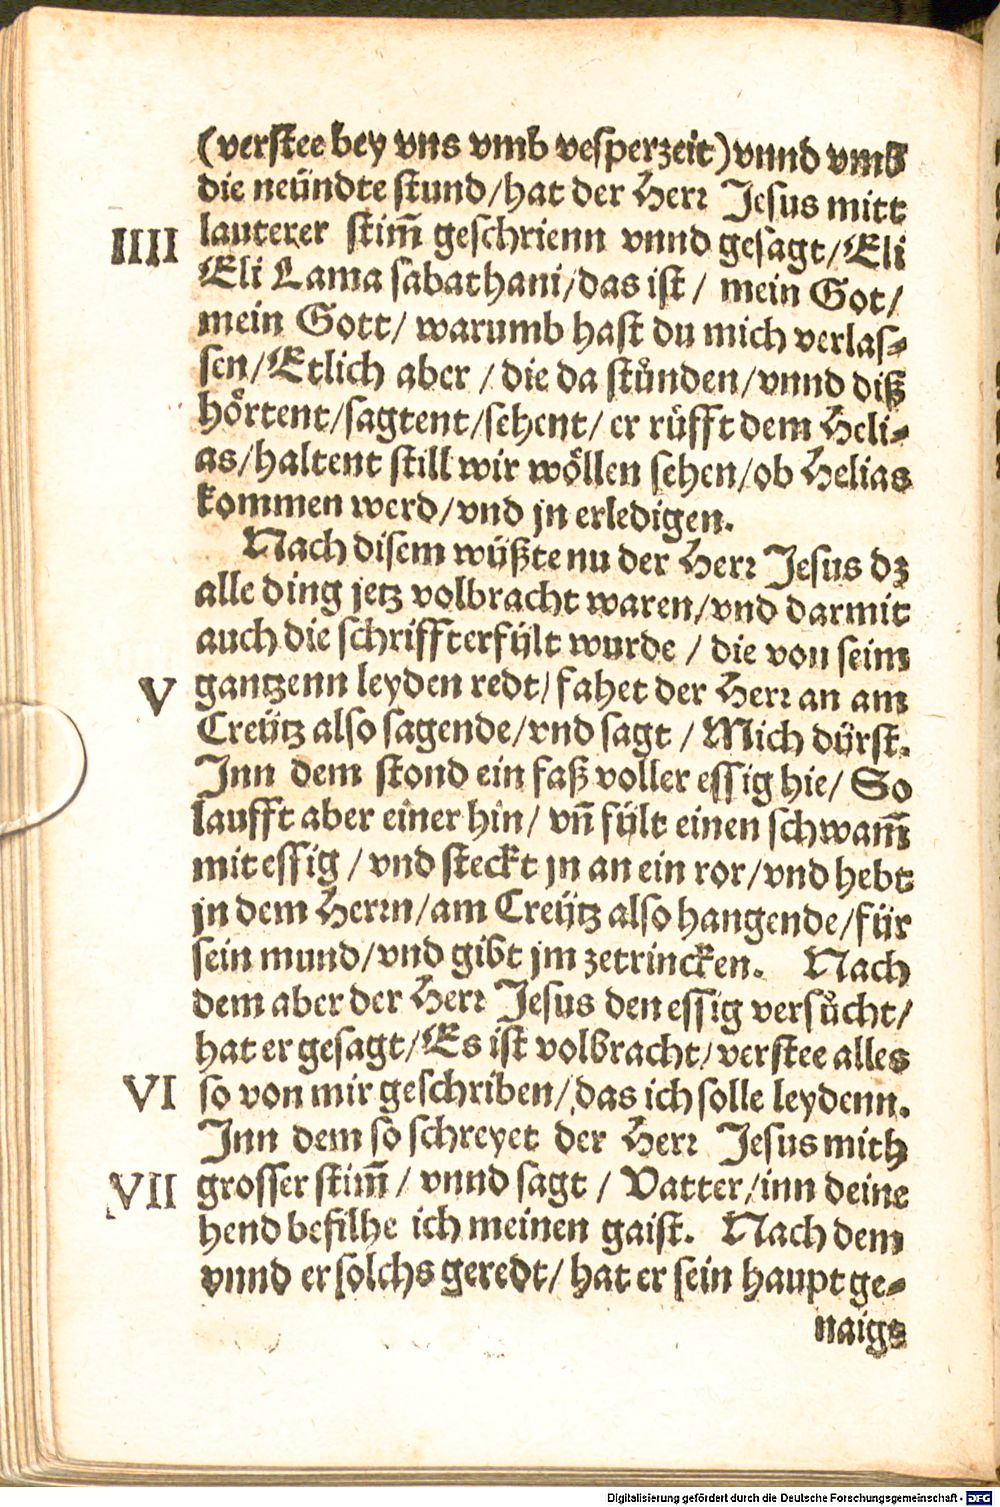 (verstee bey vns vmb vesperzeit) vnnd vmb
die neündte stund/hat der Herr Jesus mitt
IIII lauterer stim̃ geschrienn vnnd gesagt/Eli
Eli Lama sabathani/das ist/ mein Got/
mein Gott/ warumb hast du mich verlas⸗
sen/Etlich aber / die da stůnden/vnnd diß
hoͤrtent/sagtent/sehent/ er rüfft dem Heli⸗
as/haltent still wir woͤllen sehen/ob Helias
kommen werd/vnd jn erledigen.
Nach disem wüßte nu der Herr Jesus dz
alle ding jetz volbracht waren/vnd darmit
auch die schrifft erfült wurde / die von seim
V gantzenn leyden redt/fahet der Herr an am
Creütz also sagende/vnd sagt / Mich dürst.
Inn dem stond ein faß voller essig hie/ So
laufft aber einer hin/ vñ fült einen schwam̃
mit essig / vnd steckt jn an ein ror/vnd hebt
jn dem Herrn/am Creütz also hangende/für
sein mund/vnd gibt jm zetrincken. Nach
dem aber der Herr Jesus den essig versůcht/
hat er gesagt/Es ist volbracht/verstee alles
VI so von mir geschriben/das ich solle leydenn.
Inn dem so schreyet der Herr Jesus mith
VII grosser stim̃ / vnnd sagt / Vatter/inn deine
hend befilhe ich meinen gaist. Nach dem
vnnd er solchs geredt/ hat er sein haupt ge⸗
naigs
Digitalisierung gefördert durch die Deutsche Forschungsgemeinschaft - DFG